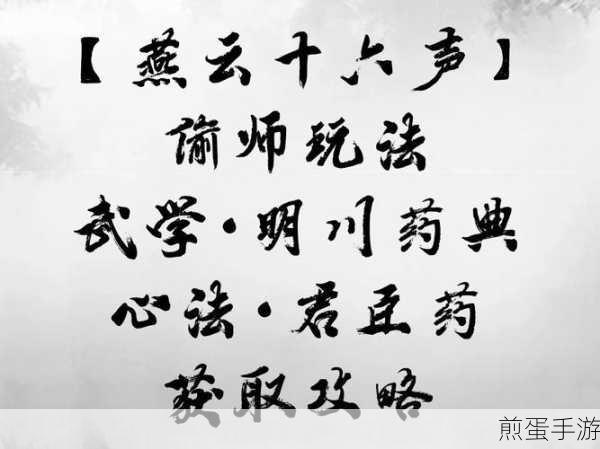 【燕云十六声】
偷师玩法
武学·明川药典
心法·君臣药
获取攻略
煎蛋手游